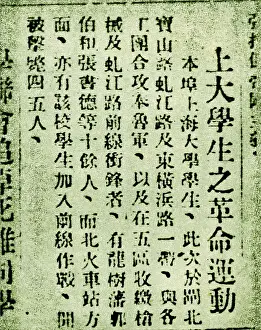 上大學生之革命運動
本埠上海大學學生、此次於閘北
寶山路虬江路及東橫浜路一帶、與各
工團合攻奉魯軍、以及在五區收繳槍
械及虬江路前線衝鋒者、有龍樹藩郭
伯和張書德等十餘人、而北火車站方
面、亦有該校學生加入前線作戰、聞
被擊斃四五人、
學聯會追悼死難同學